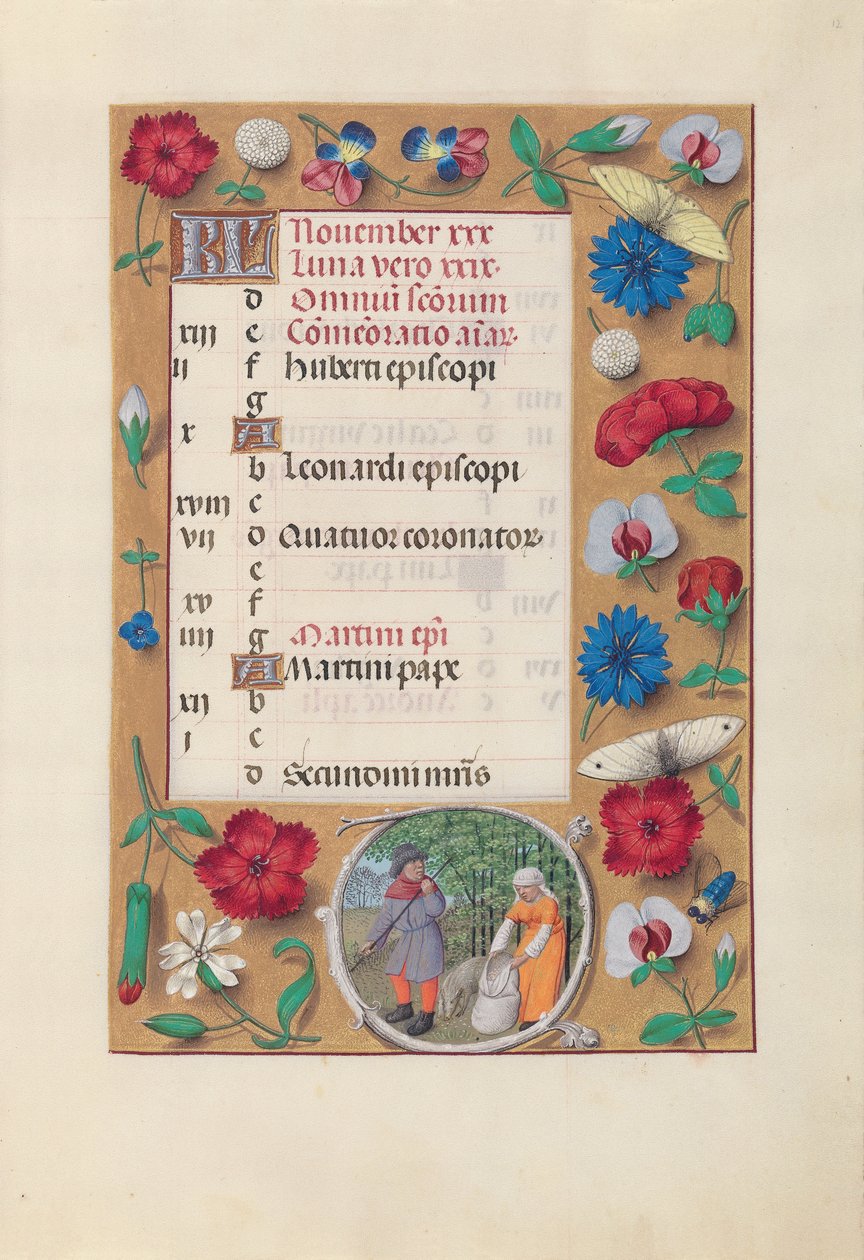 12
KL Nouember xxx
Luna vero xxix.
d Omniū scōrum
xiij e Cōmēoratio aīar.
ij f huberti episcopi
g
x A
b Leonardi episcopi
xviij c
vij d Quatuor coronator.
e
xv f
iiij g Martini ep̄i
A Martini pape
xij b
j c
d Secundini mr̄is